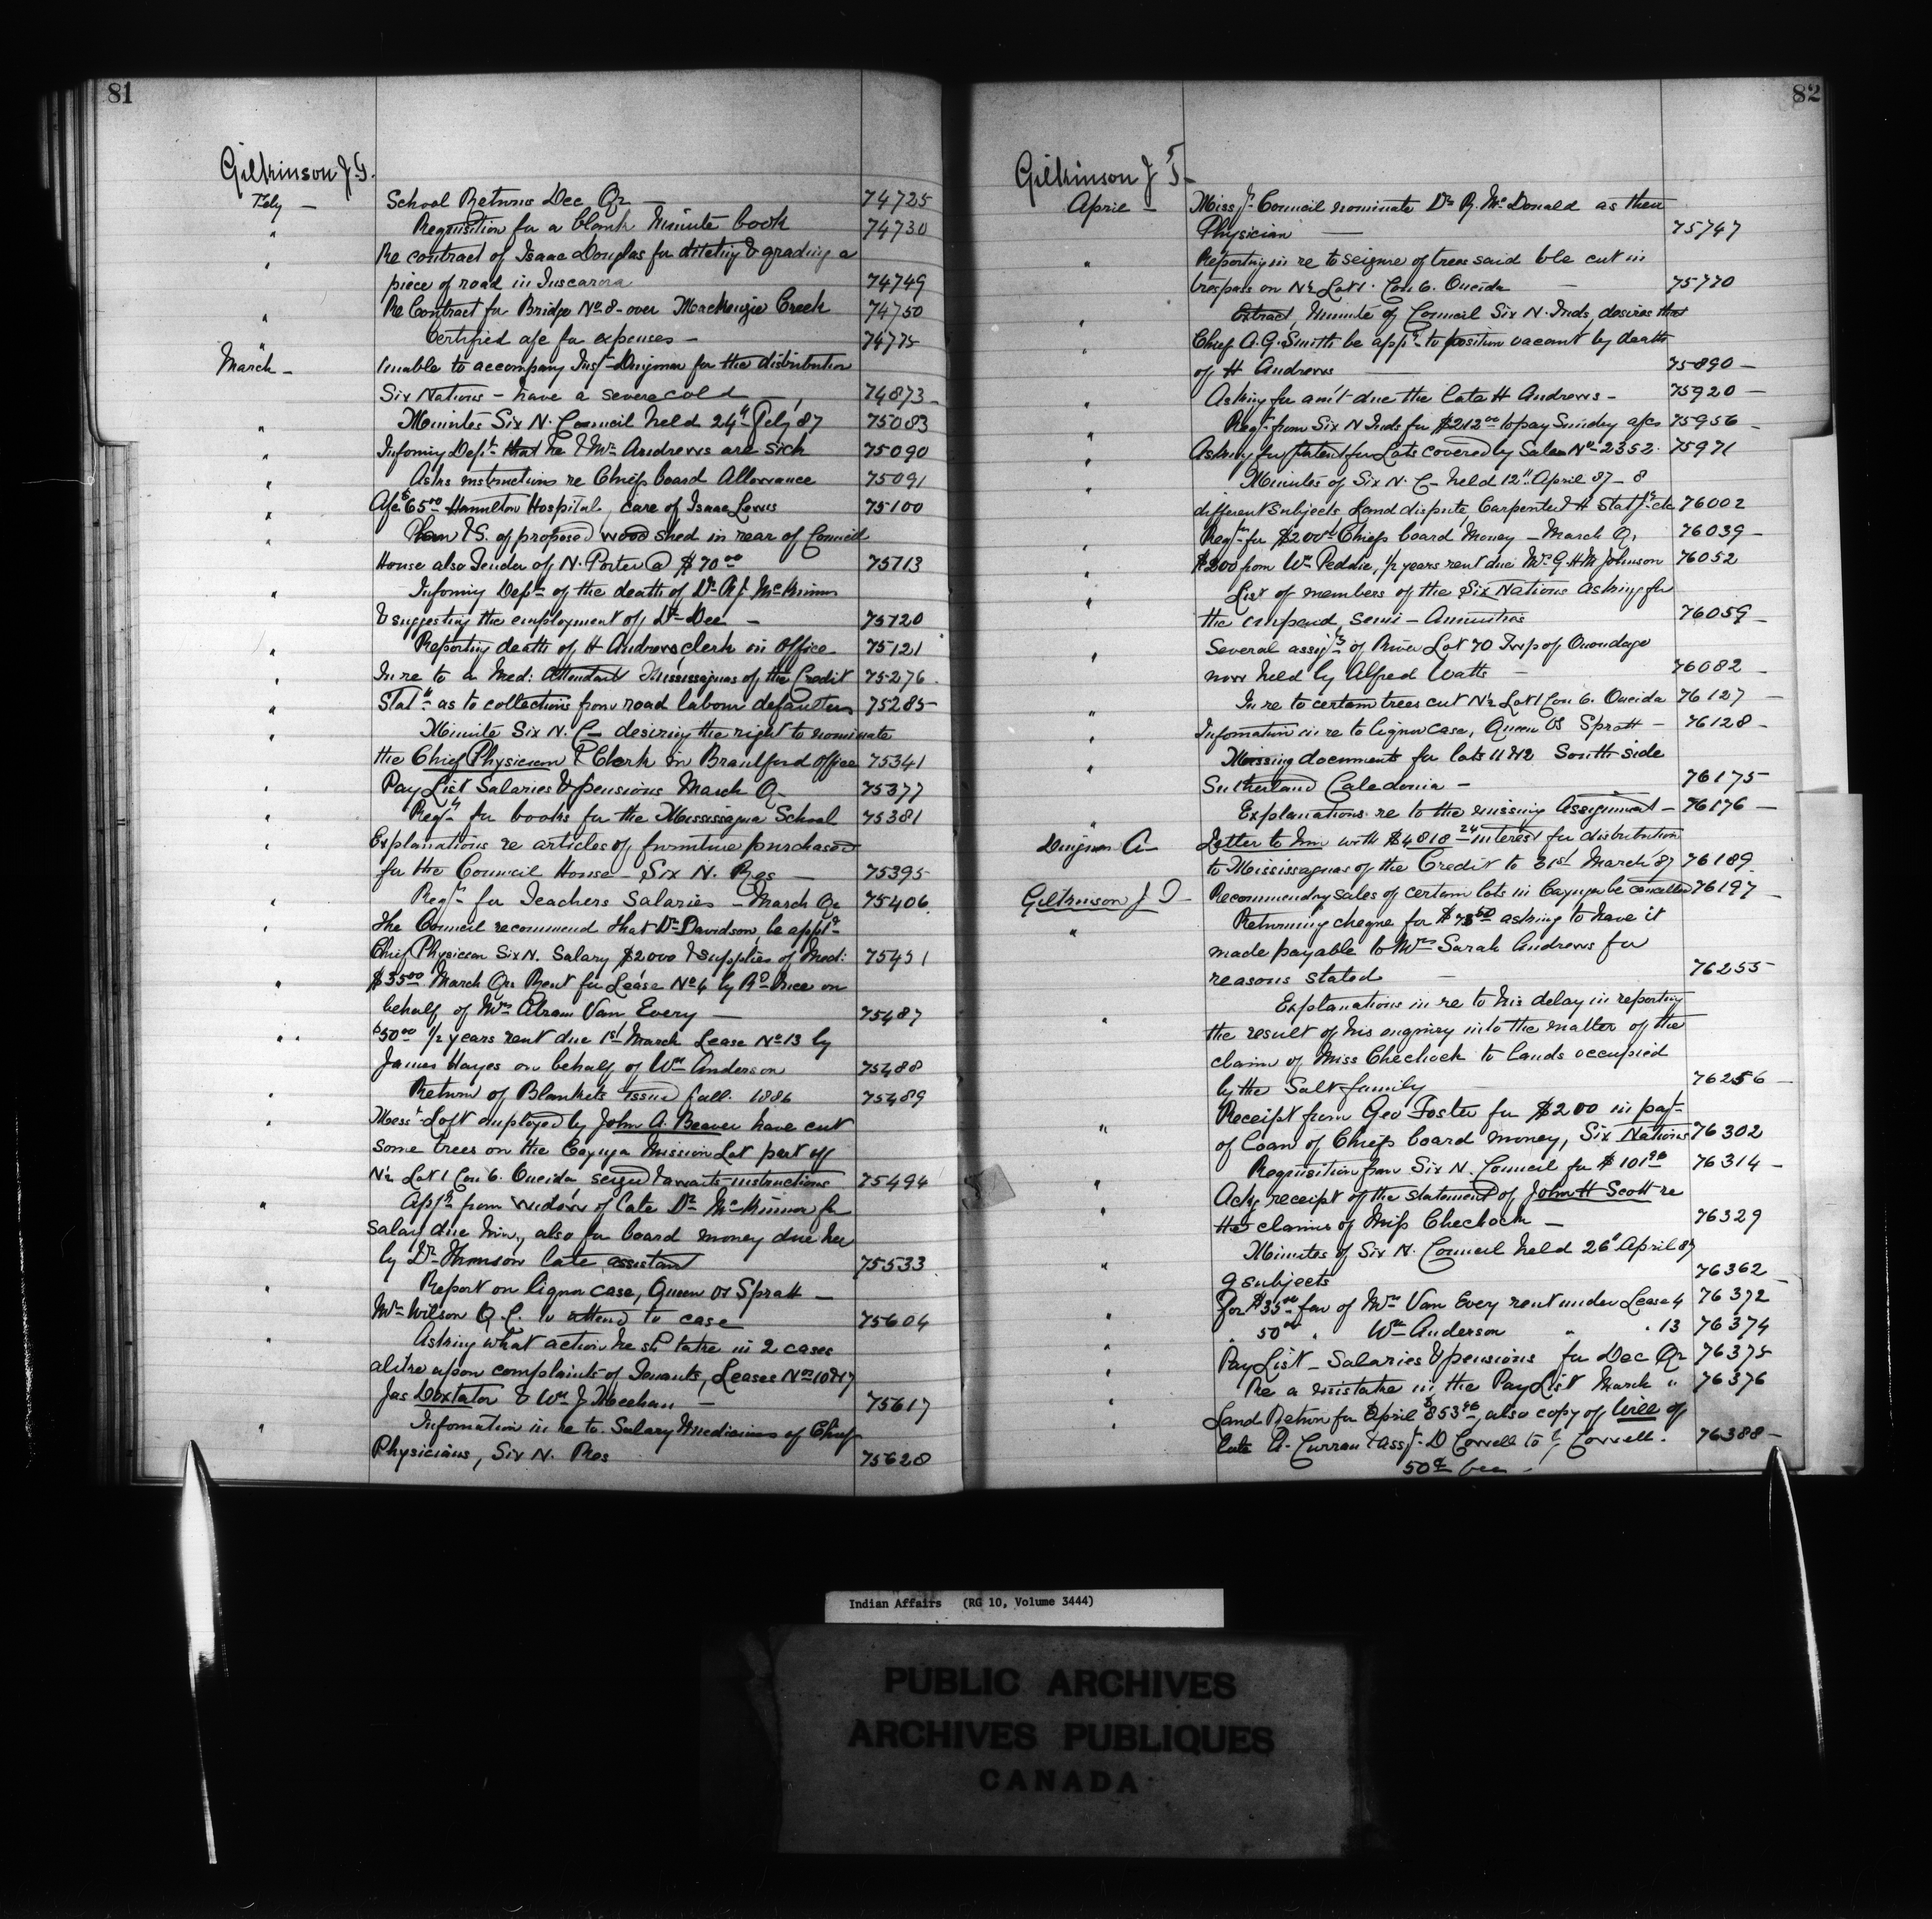 81
Gilkinson J.T.
Feby — School Returns Dec Qr — 74725
" Requisition for a blank Minute book 74730
" Re contract of Isaac Douglas for ditching & grading a
piece of road in Tuscarora 74749
" Re Contract for Bridge No 8 over MacKenzie Creek 74750
" Certified a/c for expenses — 74775
March — Unable to accompany Inspr Dingman for the distribution
Six Nations — have a severe cold 74873
" Minutes Six N. Council held 24th Feby '87 75083
" Informing Dept that he & Mr Andrews are sick 75090
" Asks instructions re Chiefs board Allowance 75091
" A/c $65.00 Hamilton Hospital, care of Isaac Lewis 75100
" Plan & S. of proposed wood shed in rear of Council
House also Tender of N. Porter @ $70.00 75113
" Informing Dept of the death of Dr R.J. McKinnon
& suggesting the employment of Dr Dee — 75120
" Reporting death of H Andrews, clerk in Office 75121
" In re to a Med: Attendant Mississaguas of the Credit 75276
" Statt as to collections from road labour defaulters 75285
" Minute Six N. C— desiring the right to nominate
the Chief Physician & Clerk in Brantford Office 75341
" Pay List Salaries & pensions March Q— 75377
" Reqn for books for the Mississagua School 75381
" Explanations re articles of furniture purchased
for the Council House — Six N. Res — 75395
" Reqn for Teachers Salaries — March Qr 75406
" The Council recommend that Dr Davidson, be appd
Chief Physician Six N. Salary $2000 & supplies of Med: 75451
" $35.00 March Qrs Rent for Lease No 4 by Rd Price on
behalf of Mrs Abram Van Every — 75487
" $50.00 1/2 years rent due 1st March Lease No 13 by
James Hayes on behalf of Wm Anderson 75488
" Return of Blankets issued fall 1886 75489
" Messrs Loft employed by John A. Beaver have cut
some trees on the Cayuga Mission Lot part of
N1/2 Lot 1 Con 6. Oneida seized & awaits instructions 75494
" Appn from widow of late Dr McKinnon for
salary due him, also for board money due her
by Dr Thomson late assistant 75533
" Report on liquor case, Queen vs Spratt —
Mr Wilson Q.C. to attend to case 75604
" Asking what action he shd take in 2 cases
alike upon complaints of Tenants, Leases Nos 10 & 17
Jas Doxtator & Wm J Meehan — 75617
" Information in re to Salary & medicines of Chief
Physicians, Six N. Res 75628
82
Gilkinson J T—
April — Miss. Council nominate Dr R. McDonald as their
Physician — 75747
" Reporting in re to seizure of trees said to be cut in
trespass on N1/2 Lot 1. Con 6. Oneida — 75770
" Extract, Minute of Council Six N. Inds, desires that
" Chief A.G. Smith be appd to position vacant by death
of H Andrews — 75890 —
" Asking for amt due the late H Andrews — 75920 —
" Reqn from Six N Inds for $212.00 to pay Sundry a/cs 75956 —
" Asking for Patent for Lots covered by Sales No 2352. 75971
" Minutes of Six N. C— held 12th April 87 — 8
different Subjects, Land dispute, Carpenter H Stats etc 76002
" Reqn for $200.00 Chiefs board Money — March Q. 76039 —
" $200 from Wm Peddie, 1/2 years rent due Mrs G H M Johnson 76052
" List of members of the Six Nations asking for
the unpaid semi-Annuities 76059 —
" Several assigts of River Lot 70 Twp of Onondaga
now held by Alfred Watts — 76082 —
" In re to certain trees cut N1/2 Lot 1 Con 6. Oneida 76127 —
" Information in re to liquor case, Queen vs Spratt — 76128 —
" Missing documents for lots 11 & 12 South side
Sutherland Caledonia — 76175 —
" Explanations re to the missing Assignment — 76176 —
Dingman A— Letter to him with $4818.24 interest for distribution
to Mississaguas of the Credit to 31st March '87 76189
Gilkinson J T— Recommending sales of certain lots in Cayuga be cancelled 76197 —
" Returning cheque for asking to have it
made payable to Mrs Sarah Andrews for
reasons stated — 76255
" Explanations in re to his delay in reporting
the result of his enquiry into the matter of the
claim of Miss Chechock to lands occupied
by the Salt family — 76256 —
" Receipt from Geo Foster for $200 in payt
of loan of Chiefs board money, Six Nations 76302
" Requisition from Six N. Council for $101.96 76314 —
" Ackg receipt of the statement of John H Scott re
the claims of Miss Chechock — 76329
" Minutes of Six N. Council held 26th April 87
9 subjects 76362 —
For $35.00 fav of Mrs Van Every rent under Lease 4 76372
" 50.00 " Wm Anderson " " 13 76374
" Pay List — Salaries & pensions for Dec Qr 76375
" Re a mistake in the Pay List March " 76376
" Land Return for April $853.96, also copy of Will of
late A. Curran & asst. D Correll to J. Correll. 76388 —
50¢ fee —
Indian Affairs (RG 10, Volume 3444)
PUBLIC ARCHIVES
ARCHIVES PUBLIQUES
CANADA